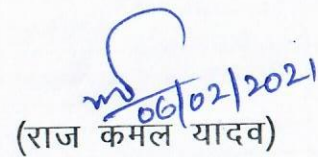 06/02/2021
(राज कमल यादव)